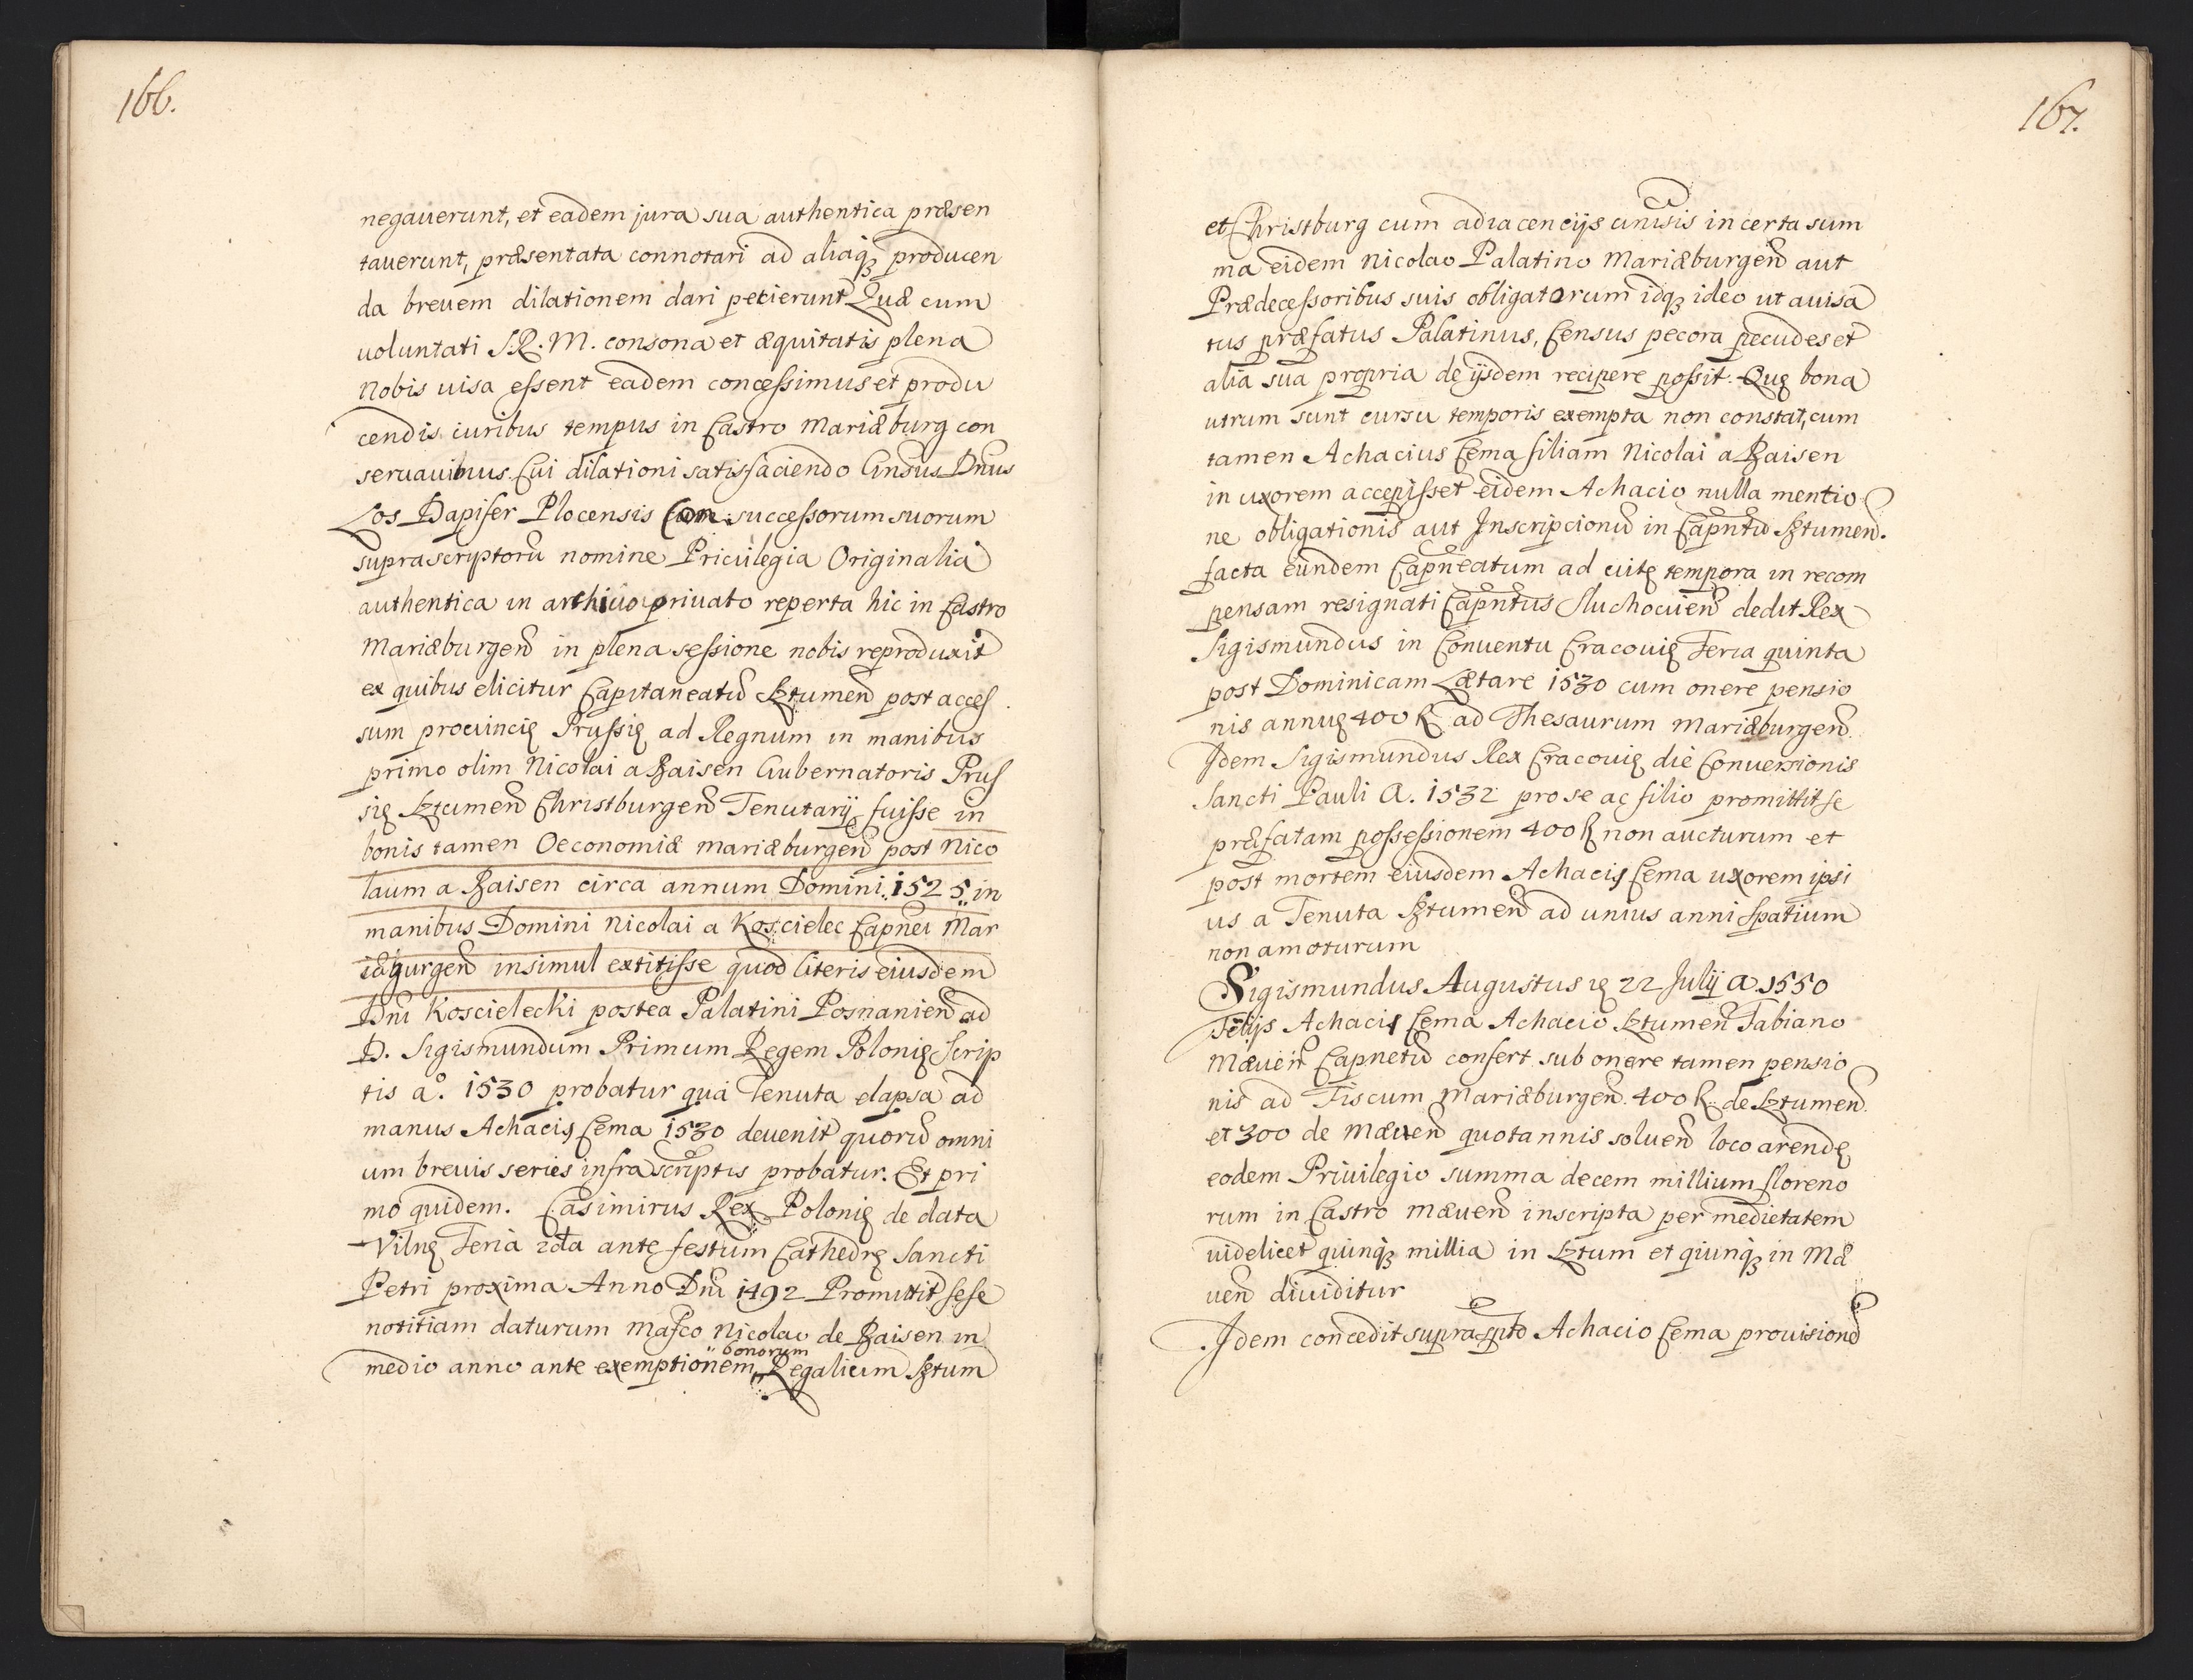 166.
negauerunt, et eadem jura sua authentica præsen
tauerunt, præsentata connotari ad aliaqꝫ producen
da breuem dilationem dari petierunt Quæ cum
uoluntati S.R.M. consona et æquitatis plena
nobis uisa essent eadem concessimus et produ
cendis iuribus tempus in Castro Mariæburg con
seruauimus. Cui dilationi satisfaciendo Gnsus Dnus
Los Dapifer Plocensis successorum suorum
suprascriptorũ nomine Priuilegia Originalia
authentica in archiuo priuato reperta hic in Castro
Mariæburgen̄ in plena sessione nobis reproduxit
ex quibus elicitur Capitaneatũ Sztumen̄ post acces
sum prouincię Prussię ad Regnum in manibus
primo olim Nicolai a Baisen Gubernatoris Prus
się Sztumen̄ Christburgen̄ Tenutarij fuisse in
bonis tamen Oeconomiæ mariæburgen̄ post Nico
laum a Baisen circa annum Domini 1525 in
manibus Domini Nicolai a Koscielec Capnei Mar
iæburgen̄ insimul extitisse quod literis eiusdem
Dni Koscielecki postea Palatini Posnanien̄ ad
D. Sigismundum Primum Regem Polonię Scrip
tis aº. 1530 probatur qua Tenuta elapsa ad
manus Achacij Cema 1530 deuenit quorũ omni
um breuis series infra scriptis probatur. Et pri
mo quidem. Casimirus Rex Polonię de data
Vilnę Feria 2da ante festum Cathedrę Sancti
Petri proxima Anno Dni 1492 Promittit sese
notitiam daturum Mafco Nicolao de Baisen in
bonorum
medio anno ante exemptionem Regalium Sztum
167.
et Christburg cum adiacencijs uniūsis in certa sum
ma eidem Nicolao Palatino Mariæburgen̄ aut
Prædecessoribus suis obligatorum idqꝫ ideo ut auisa
tus præfatus Palatinus, Census pecora pecudes et
alia sua propria de ijsdem recipere possit. Quę bona
utrum sunt cursu temporis exempta non constat, cum
tamen Achacius Cema filiam Nicolai a Baisen
in uxorem accepisset eidem Achacio nulla mentio
ne obligationis aut Inscripcionũ in Capntũ Sztumen̄.
facta eundem Capneatum ad uitę tempora in recom
pensam resignati Capntus Sluchouien̄ dedit Rex
Sigismundus in Conuentu Cracouię Feria quinta
post Dominicam Lætare 1530 cum onere pensio
nis annuę 400 ad Thesaurum Mariæburgen̄.
Idem Sigismundus Rex Cracouię die Conuersionis
Sancti Pauli A. 1532 pro se ac filio promittit se
præfatam possessionem 400 non aucturum et
post mortem eiusdem Achacij Cema uxorem ipsi
us a Tenuta Sztumen̄ ad unius anni spatium
non amoturum
Sigismundus Augustus 22 Julij A. 1550
Achacij Cema Achacio Sztumen̄ Fabiano
Mæuen̄ Capnetũ confert sub onere tamen pensio
nis ad Fiscum Mariæburgen̄. 400 de Sztumen̄.
et 300 de Mæuen̄ quotannis soluen̄ loco arendę
eodem Priuilegio summa decem millium floreno
rum in Castro mæuen̄ inscripta per medietatem
uidelicet quinqꝫ millia in Sztum et quinqꝫ in Mæ
uen̄ diuiditur
Idem concedit suprasptō Achacio Cema prouisionē